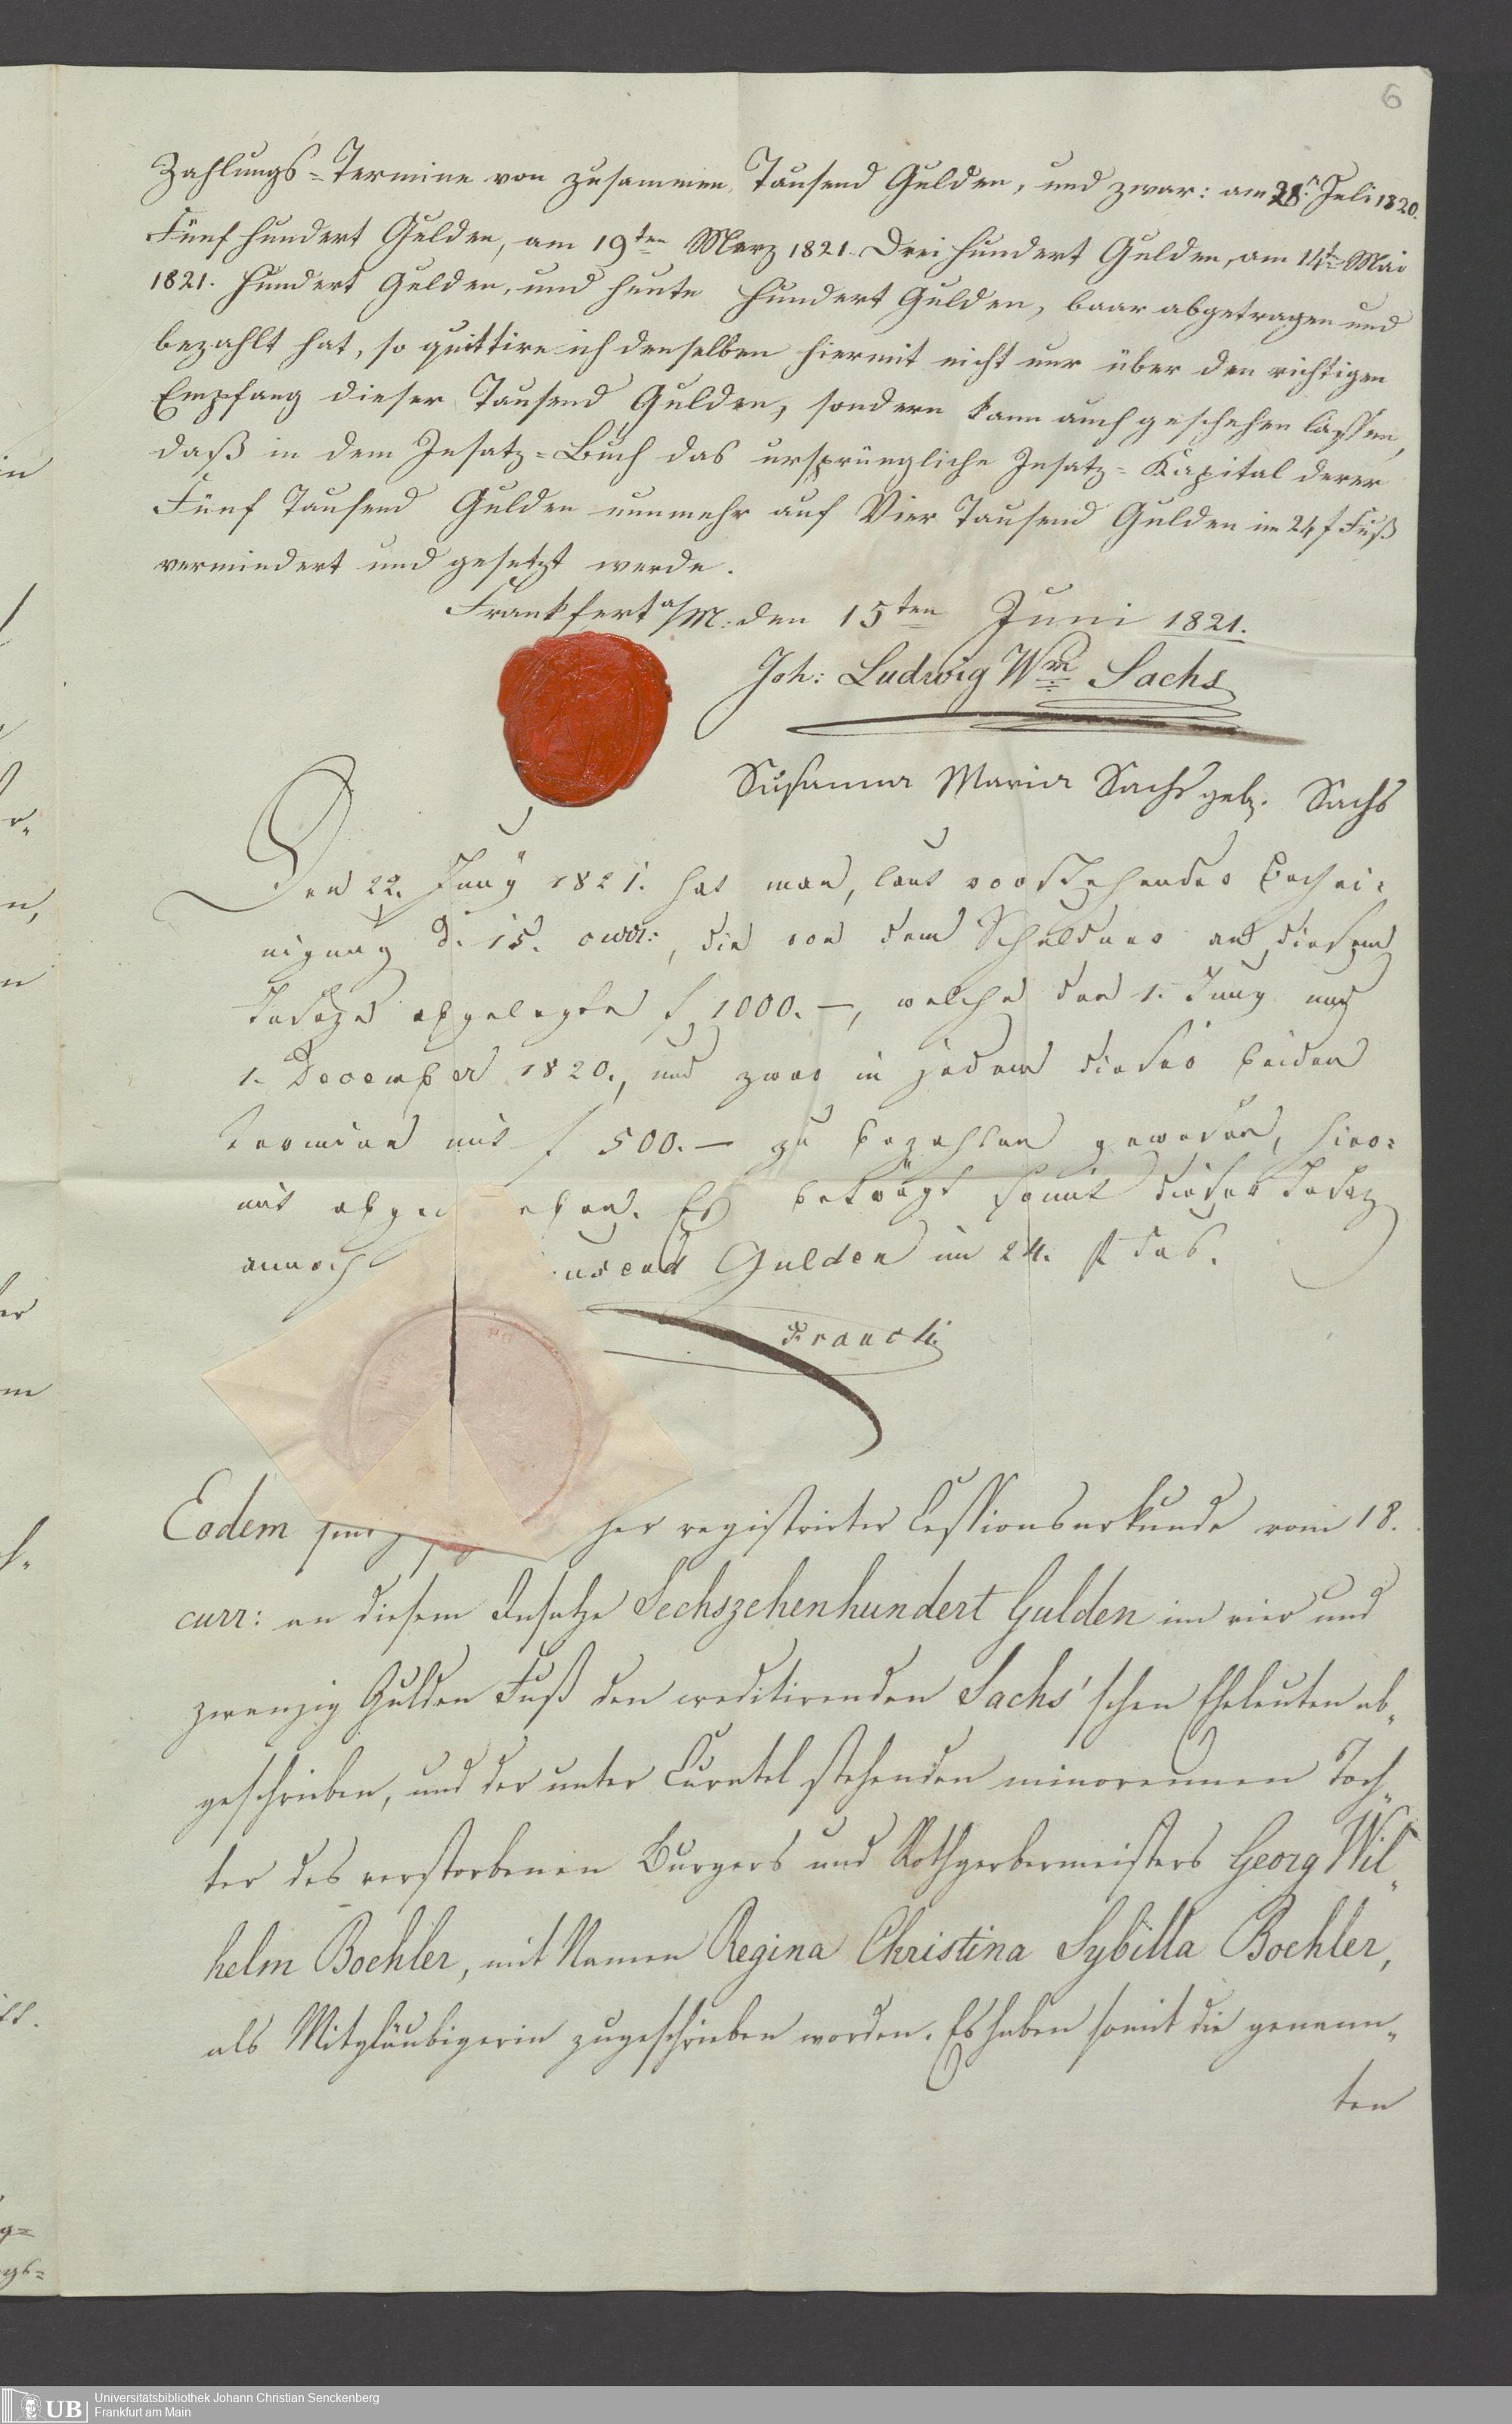 6
Zahlungs-Termine von zusammen Tausend Gulden, und zwar: am 28n Juli 1820.
Fünf hundert Gulden, am 19ten Merz 1821. Drei hundert Gulden, am 14ten Mai
1821. hundert Gulden, und heute hundert Gulden, baar abgetragen und
bezahlt hat, so quittire ich denselben hiermit nicht nur über den richtigen
Empfang dieser Tausend Gulden, sondern kann auch geschehen lassen,
daß in dem Insatz-Buch das ursprüngliche Insatz-Kapital derer
Fünf Tausend Gulden nunmehr auf Vier Tausend Gulden im 24 f Fuß
vermindert und gesetzt werde.
Frankfurt a/M: den 15ten Juni 1821.
Joh: Ludwig Wm Sachs
Susanna Maria Sachs geb. Sachs
Den 22. Juny 1821. hat man, laut vorstehender Beschei-
nigung d. 15. curr:, die von dem Schuldner an diesem
Insatze abgelegte f 1000.—, welche den 1. Juny und
1. December 1820., und zwar in jedem dieser beiden
Termine mit f 500.— zu bezahlen gewesen, hier-
mit abge eben. Es beträgt somit dieser Insatz
annoch usend Gulden im 24. f Fus.
Franck
Eodem sind her registrirter Cessionsurkunde vom 18.
curr: an diesem Insatze Sechszehenhundert Gulden im vier und
zwanzig Gulden Fuß den creditirenden Sachs'schen Eheleuten ab-
geschrieben, und der unter Curatel stehenden minorennen Toch-
ter des verstorbenen Burgers und Rothgerbermeisters Georg Wil-
helm Boehler, mit Namen Regina Christina Sybilla Boehler,
als Mitgläubigerin zugeschrieben worden. Es haben somit die genann-
ten
UB
Universitätsbibliothek Johann Christian Senckenberg
Frankfurt am Main